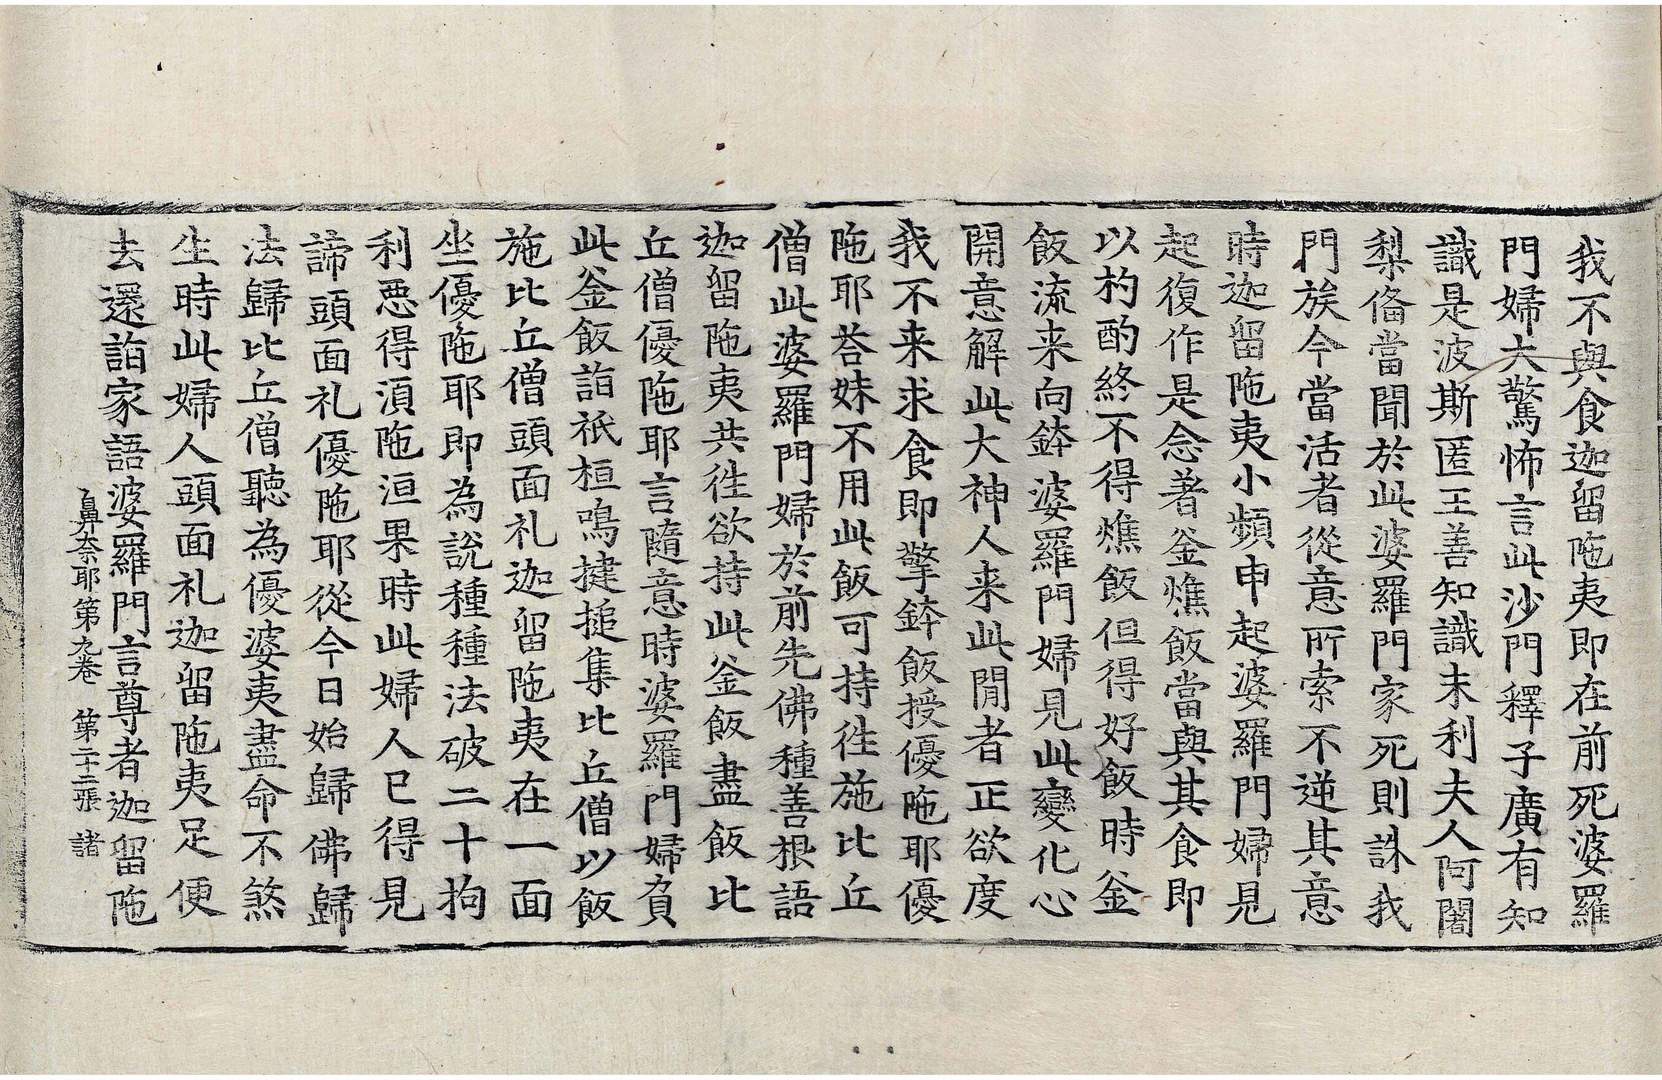 我不與食迦留陁夷即在前死婆羅
門婦大驚怖言此沙門釋子廣有知
識是波斯匿王善知識末利夫人阿闍
梨俻當聞於此婆羅門家死則誅我
門族今當活者從意所索不逆其意
時迦留陁夷小頻申起婆羅門婦見
起復作是念著釜燋飯當與其食即
以杓酌終不得燋飯但得好飯時釜
飯流来向鉢婆羅門婦見此變化心
開意解此大神人来此閒者正欲度
我不来求食即擎鉢飯授優陁耶優
陁耶荅妹不用此飯可持徃施比丘
僧此婆羅門婦於前先佛種善根語
迦留陁夷共徃欲持此釜飯盡飯比
丘僧優陁耶言隨意時婆羅門婦負
此釜飯詣祇桓鳴揵搥集比丘僧以飯
施比丘僧頭面礼迦留陁夷在一面
坐優陁耶即為說種種法破二十拘
利惡得湏陁洹果時此婦人已得見
諦頭面礼優陁耶從今日始歸佛歸
法歸比丘僧聽為優婆夷盡命不煞
生時此婦人頭面礼迦留陁夷足便
去還詣家語婆羅門言尊者迦留陁
鼻奈耶第九卷 第二十二張 諸